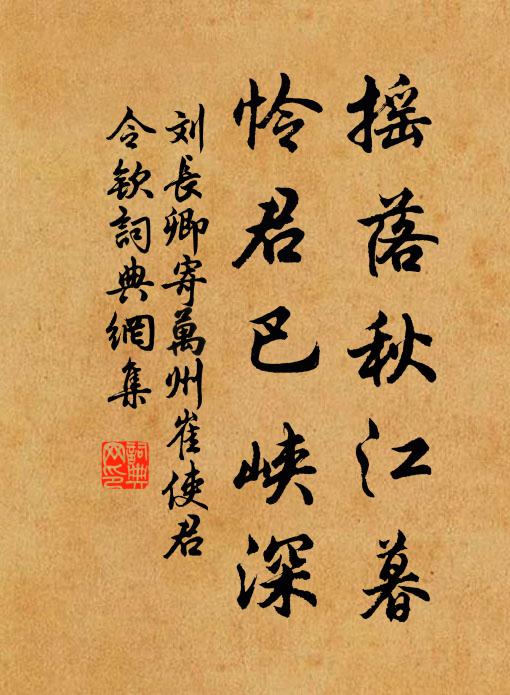 摇落秋江暮
怜君巴峡深
刘長卿寄萬州崔使君
令欽詞典網集
詞典
网印